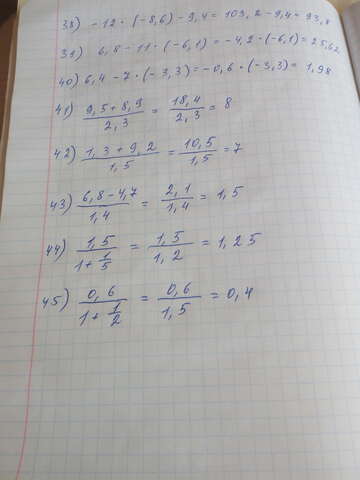 38) -12 · (-8,6) - 9,4 = 103,2 - 9,4 = 93,8
31) 6,8 - 11 · (-6,1) = -4,2 · (-6,1) = 25,62
40) 6,4 - 7 · (-3,3) = -0,6 · (-3,3) = 1,98
41) (9,5 + 8,9)/2,3 = 18,4/2,3 = 8
42) (1,3 + 9,2)/1,5 = 10,5/1,5 = 7
43) (6,8 - 4,7)/1,4 = 2,1/1,4 = 1,5
44) 1,5/(1 + 1/5) = 1,5/1,2 = 1,25
45) 0,6/(1 + 1/2) = 0,6/1,5 = 0,4